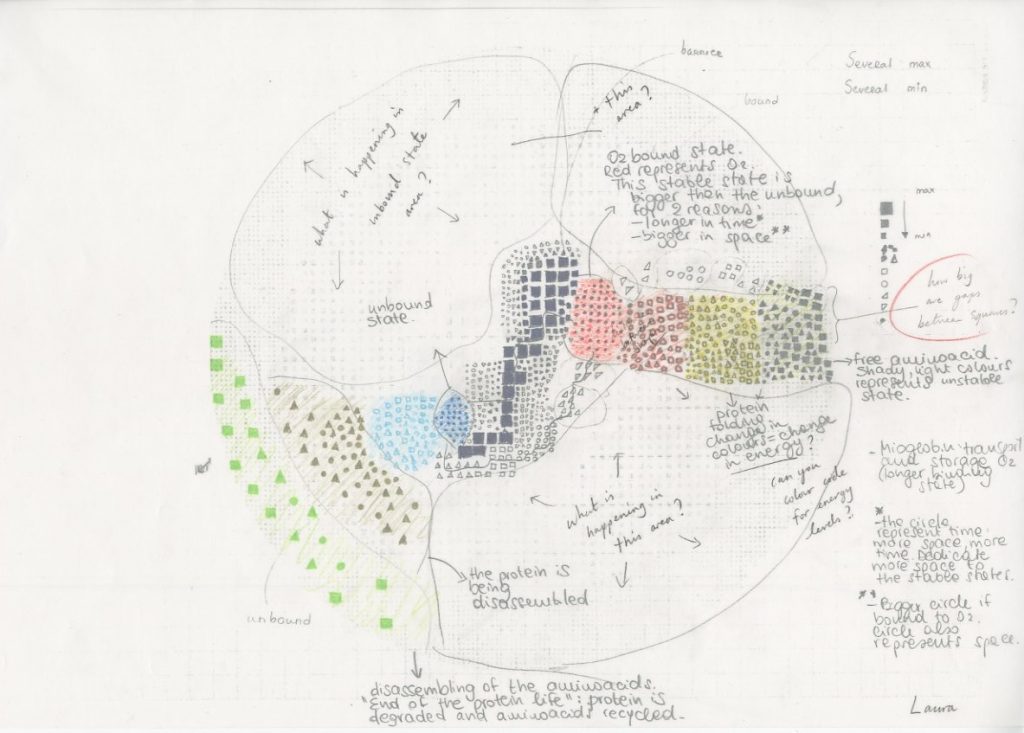 barrier
Several max
Several min
bound
+ this
area?
what is happening in
inbound state
area?
O2 bound state.
Red represents O2.
This stable state is
bigger then the unbound,
for 2 reasons:
-longer in time*
-bigger in space**
max
min
how big
are gaps
between squares?
unbound
state.
free aminoacid.
Shady, light colours
represents unstable
state.
protein
folding
change in
colours=change
in energy?
can you
colour code
for energy
levels?
-Mioglobin transport
and storage O2
(longer binding
state)
what is
happening in
this area?
*
-the circle
represent time:
more space, more
time. Dedicate
more space to
the stable states.
the protein is
being
disassembled
**
-Bigger circle if
bound to O2.
circle also
represents space.
unbound
disassembling of the aminoacids.
"End of the protein life": protein is
degraded and aminoacids recycled.
Laura